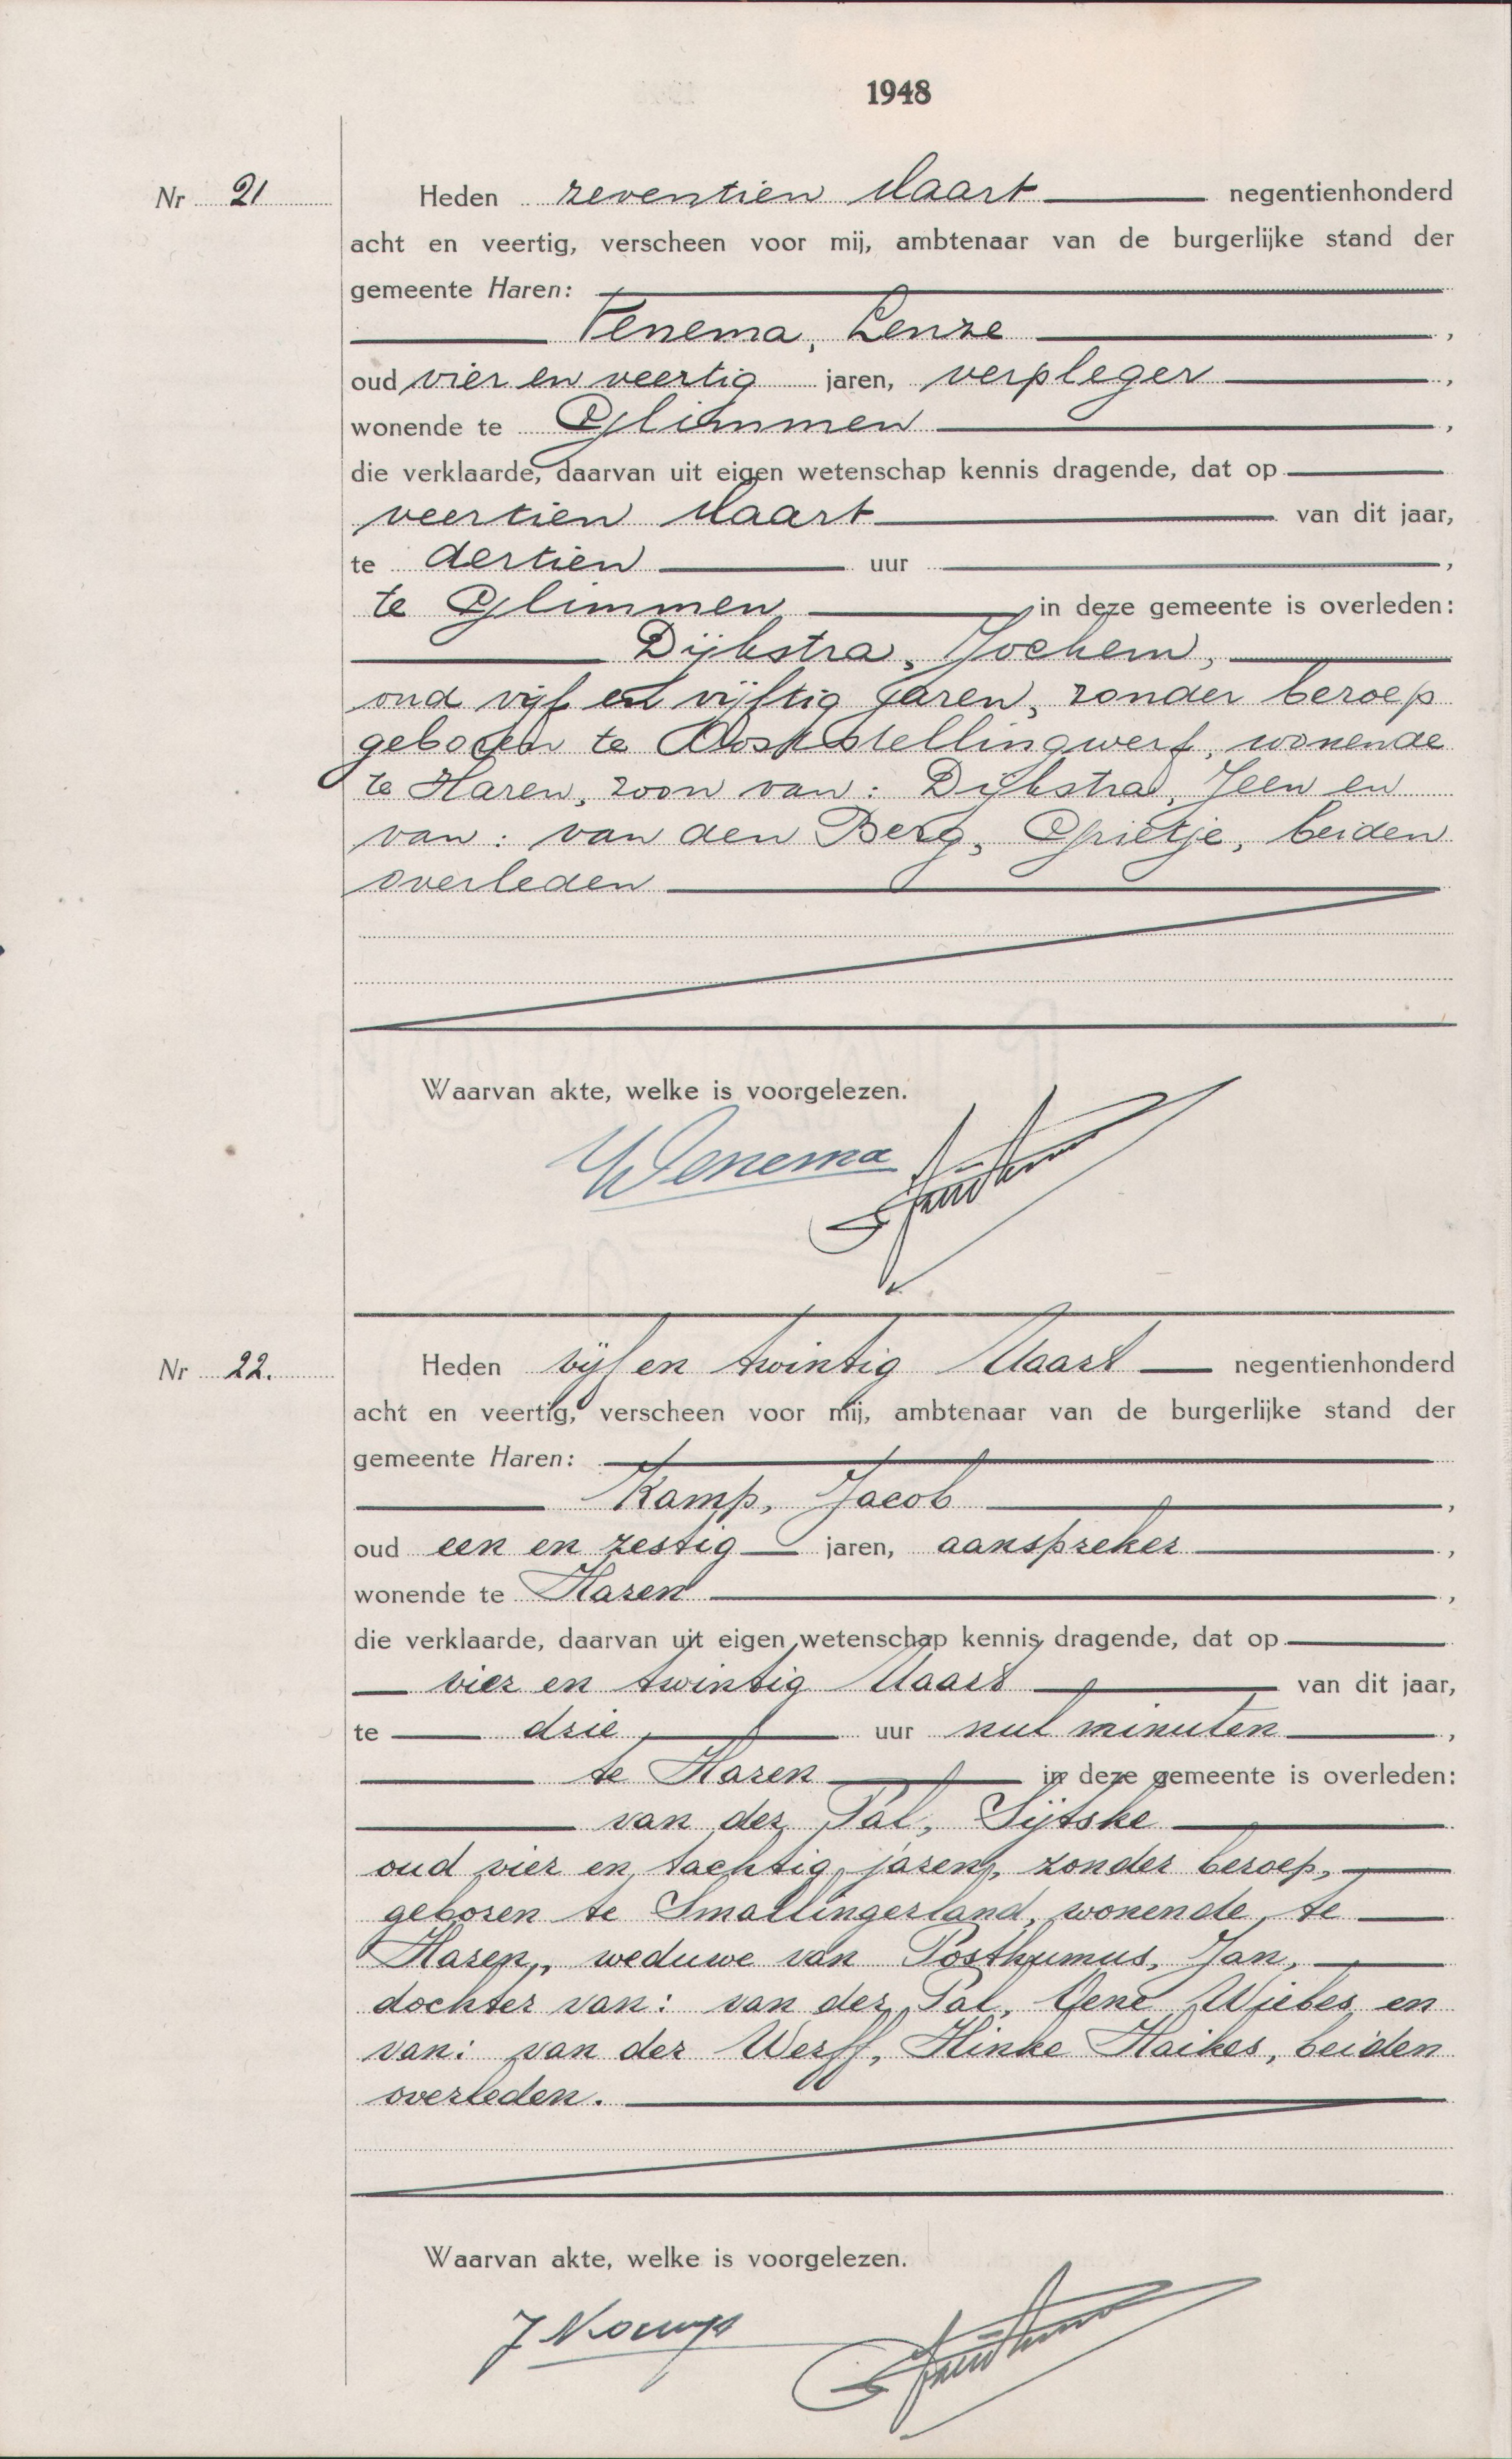 1948
Nr 21
Heden zeventien Maart negentienhonderd
acht en veertig, verscheen voor mij, ambtenaar van de burgerlijke stand der
gemeente Haren:
Venema, Lenze,
oud vier en veertig jaren, verpleger,
wonende te Glimmen,
die verklaarde, daarvan uit eigen wetenschap kennis dragende, dat op
veertien Maart van dit jaar,
te dertien uur,
te Glimmen in deze gemeente is overleden:
Dijkstra, Jochem,
oud vijf en vijftig jaren, zonder beroep
geboren te Ooststellingwerf, wonende
te Haren, zoon van: Dijkstra, Jeen en
van: van den Berg, Grietje, beiden
overleden
Waarvan akte, welke is voorgelezen.
Venema
Nr 22.
Heden vijf en twintig Maart negentienhonderd
acht en veertig, verscheen voor mij, ambtenaar van de burgerlijke stand der
gemeente Haren:
Kamp, Jacob,
oud een en zestig jaren, aanspreker,
wonende te Haren,
die verklaarde, daarvan uit eigen wetenschap kennis dragende, dat op
vier en twintig Maart van dit jaar,
te drie uur nul minuten,
te Haren in deze gemeente is overleden:
van der Pal, Sijtske
oud vier en tachtig jaren, zonder beroep,
geboren te Smallingerland, wonende te
Haren, weduwe van Posthumus, Jan,
dochter van: van der Pal, Oene Wiebes en
van: van der Werff, Hinke Haikes, beiden
overleden.
Waarvan akte, welke is voorgelezen.
J Kamp